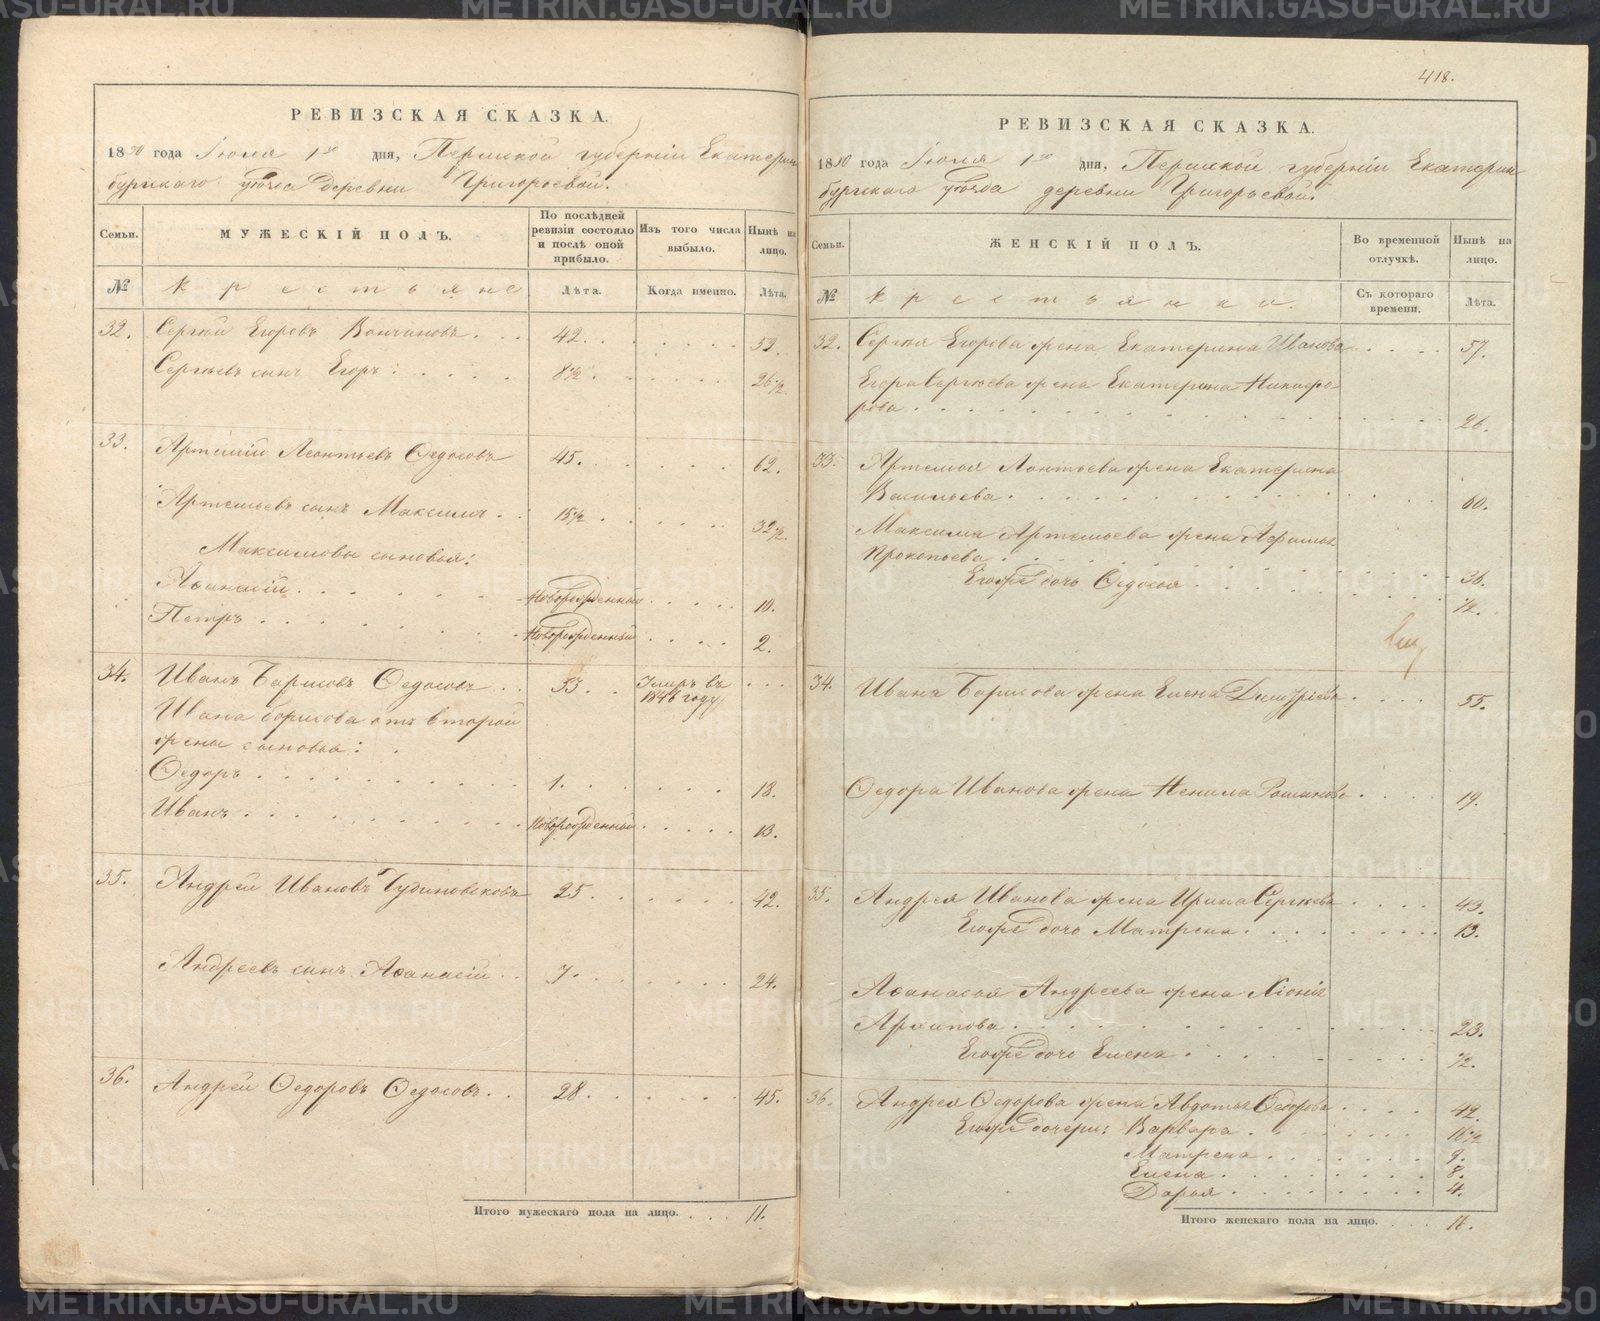 418.
РЕВИЗСКАЯ СКАЗКА.
1850 года Іюля 1го дня, Пермской губерніи Екатерин
бургскаго уѣзда деревни Григорьевой.
Семьи.
МУЖЕСКІЙ ПОЛЪ.
По послѣдней ревизіи состояло и послѣ оной прибыло.
Изъ того числа выбыло.
Нынѣ на лицо.
№
Крестьяне
Лѣта.
Когда именно.
Лѣта.
32. Сергѣй Егоровъ 42. 59.
Сергѣевъ сынъ Егоръ: 8 1/2. 26 1/2.
33. Артемій Леонтьевъ Ѳедосовъ 45. 62.
Артемьевъ сынъ Максимъ. 15 1/2. 32 1/2.
Максимовы сыновья:
Аѳанасій. Новорожденный 10.
Петръ. Новорожденный 2.
34. Иванъ Борисовъ Ѳедосовъ 53. Умеръ въ 1846 году
Ивана Борисова отъ второй
жены сыновья:
Ѳедоръ. 1. 18.
Иванъ. Новорожденный 13.
35. Андрей Ивановъ Чудиновсковъ 25. 42.
Андреевъ сынъ Аѳанасій. 7. 24.
36. Андрей Ѳедоровъ Ѳедосовъ. 28. 45.
Итого мужескаго пола на лицо. 11.
РЕВИЗСКАЯ СКАЗКА.
1850 года Іюля 1го дня, Пермской губерніи Екатерин
бургскаго уѣзда деревни Григорьевой.
Семьи.
ЖЕНСКІЙ ПОЛЪ.
Во временной отлучкѣ.
Нынѣ на лицо.
№
Крестьянки.
Съ котораго времени.
Лѣта.
32. Сергѣя Егорова жена Екатерина Иванова 57.
Егора Сергѣева жена Екатерина Никифо-
рова. 26.
33. Артемья Леонтьева жена Екатерина
Васильева. 60.
Максима Артемьева жена Афимья
Прокопьева. 36.
Егожѣ дочь Ѳедосья. 1/2.
34. Ивана Борисова жена Елена Димитріева 55.
Ѳедора Иванова жена Ненила Романова 19.
35. Андрея Иванова жена Ирина Сергѣева 43.
Егожѣ дочь Матрена. 13.
Аѳанасья Андреева жена Хіонія
Архипова. 23.
Егожѣ дочь Елена. 1/2.
36. Андрея Ѳедорова жена Авдотья Ѳедорова 42.
Егожѣ дочери: Варвара. 16 1/2
Матрена. 9.
Елена. 8.
Дарья. 4.
Итого женскаго пола на лицо. 14.
METRIKI.GASO-URAL.RU